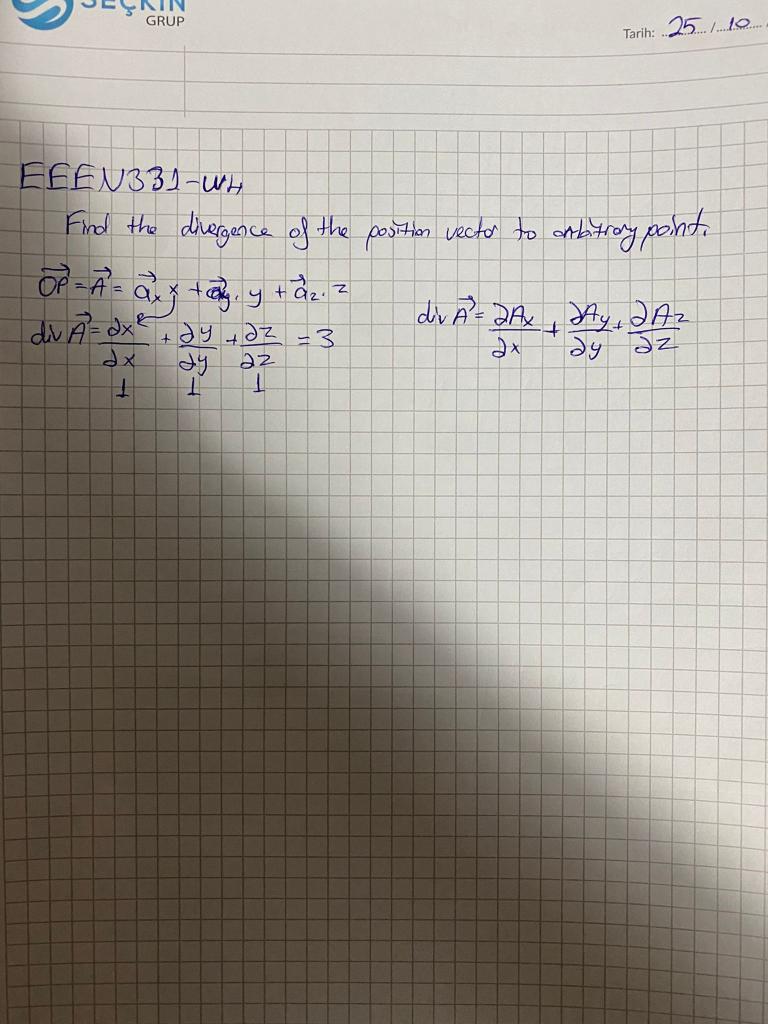 SEÇKİN
GRUP
Tarih: 25 / 10
EEEN331-W4
Find the divergence of the position vector to arbitrary point.
OP⃗ = A⃗ = a⃗x x + a⃗y. y + a⃗z. z
div A⃗ = ∂x/∂x + ∂y/∂y + ∂z/∂z = 3
1 1 1
div A⃗ = ∂Ax/∂x + ∂Ay/∂y + ∂Az/∂z